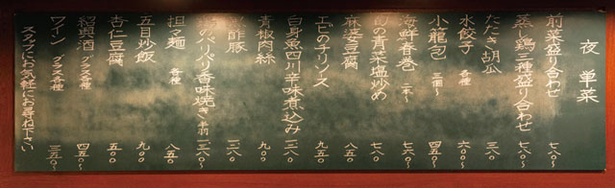 夜 単菜
前菜盛り合わせ 一八〇〜
蒸し鶏三種盛り合わせ 七八〇〜
たたき胡瓜 三八〇
水餃子 各種 六〇〇〜
小龍包 三個〜 四五〇
海鮮春巻 二本〜 五六〇〜
の青菜塩炒め 七八〇
麻婆豆腐 八五〇
エビのチリソース
白身魚四川辛味煮込み 一三八〇
青椒肉絲 九八〇
酢豚 一二八〇
パリパリ香味焼き 半羽 一二八〇〜
担々麺 各種 八五〇
五目炒飯 九〇〇
杏仁豆腐 五〇〇
紹興酒 グラス各種 四五〇〜
ワイン グラス各種 三五〇〜
スタッフにお気軽にお尋ね下さい